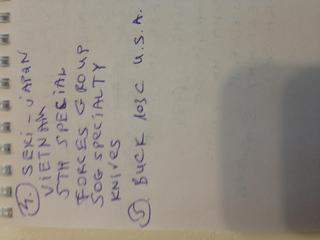 4. SEKI-JAPAN
VIETNAM
5TH SPECIAL
FORCES GROUP
SOG SPECIALTY
KNIVES
5. BUCK 103C U.S.A.